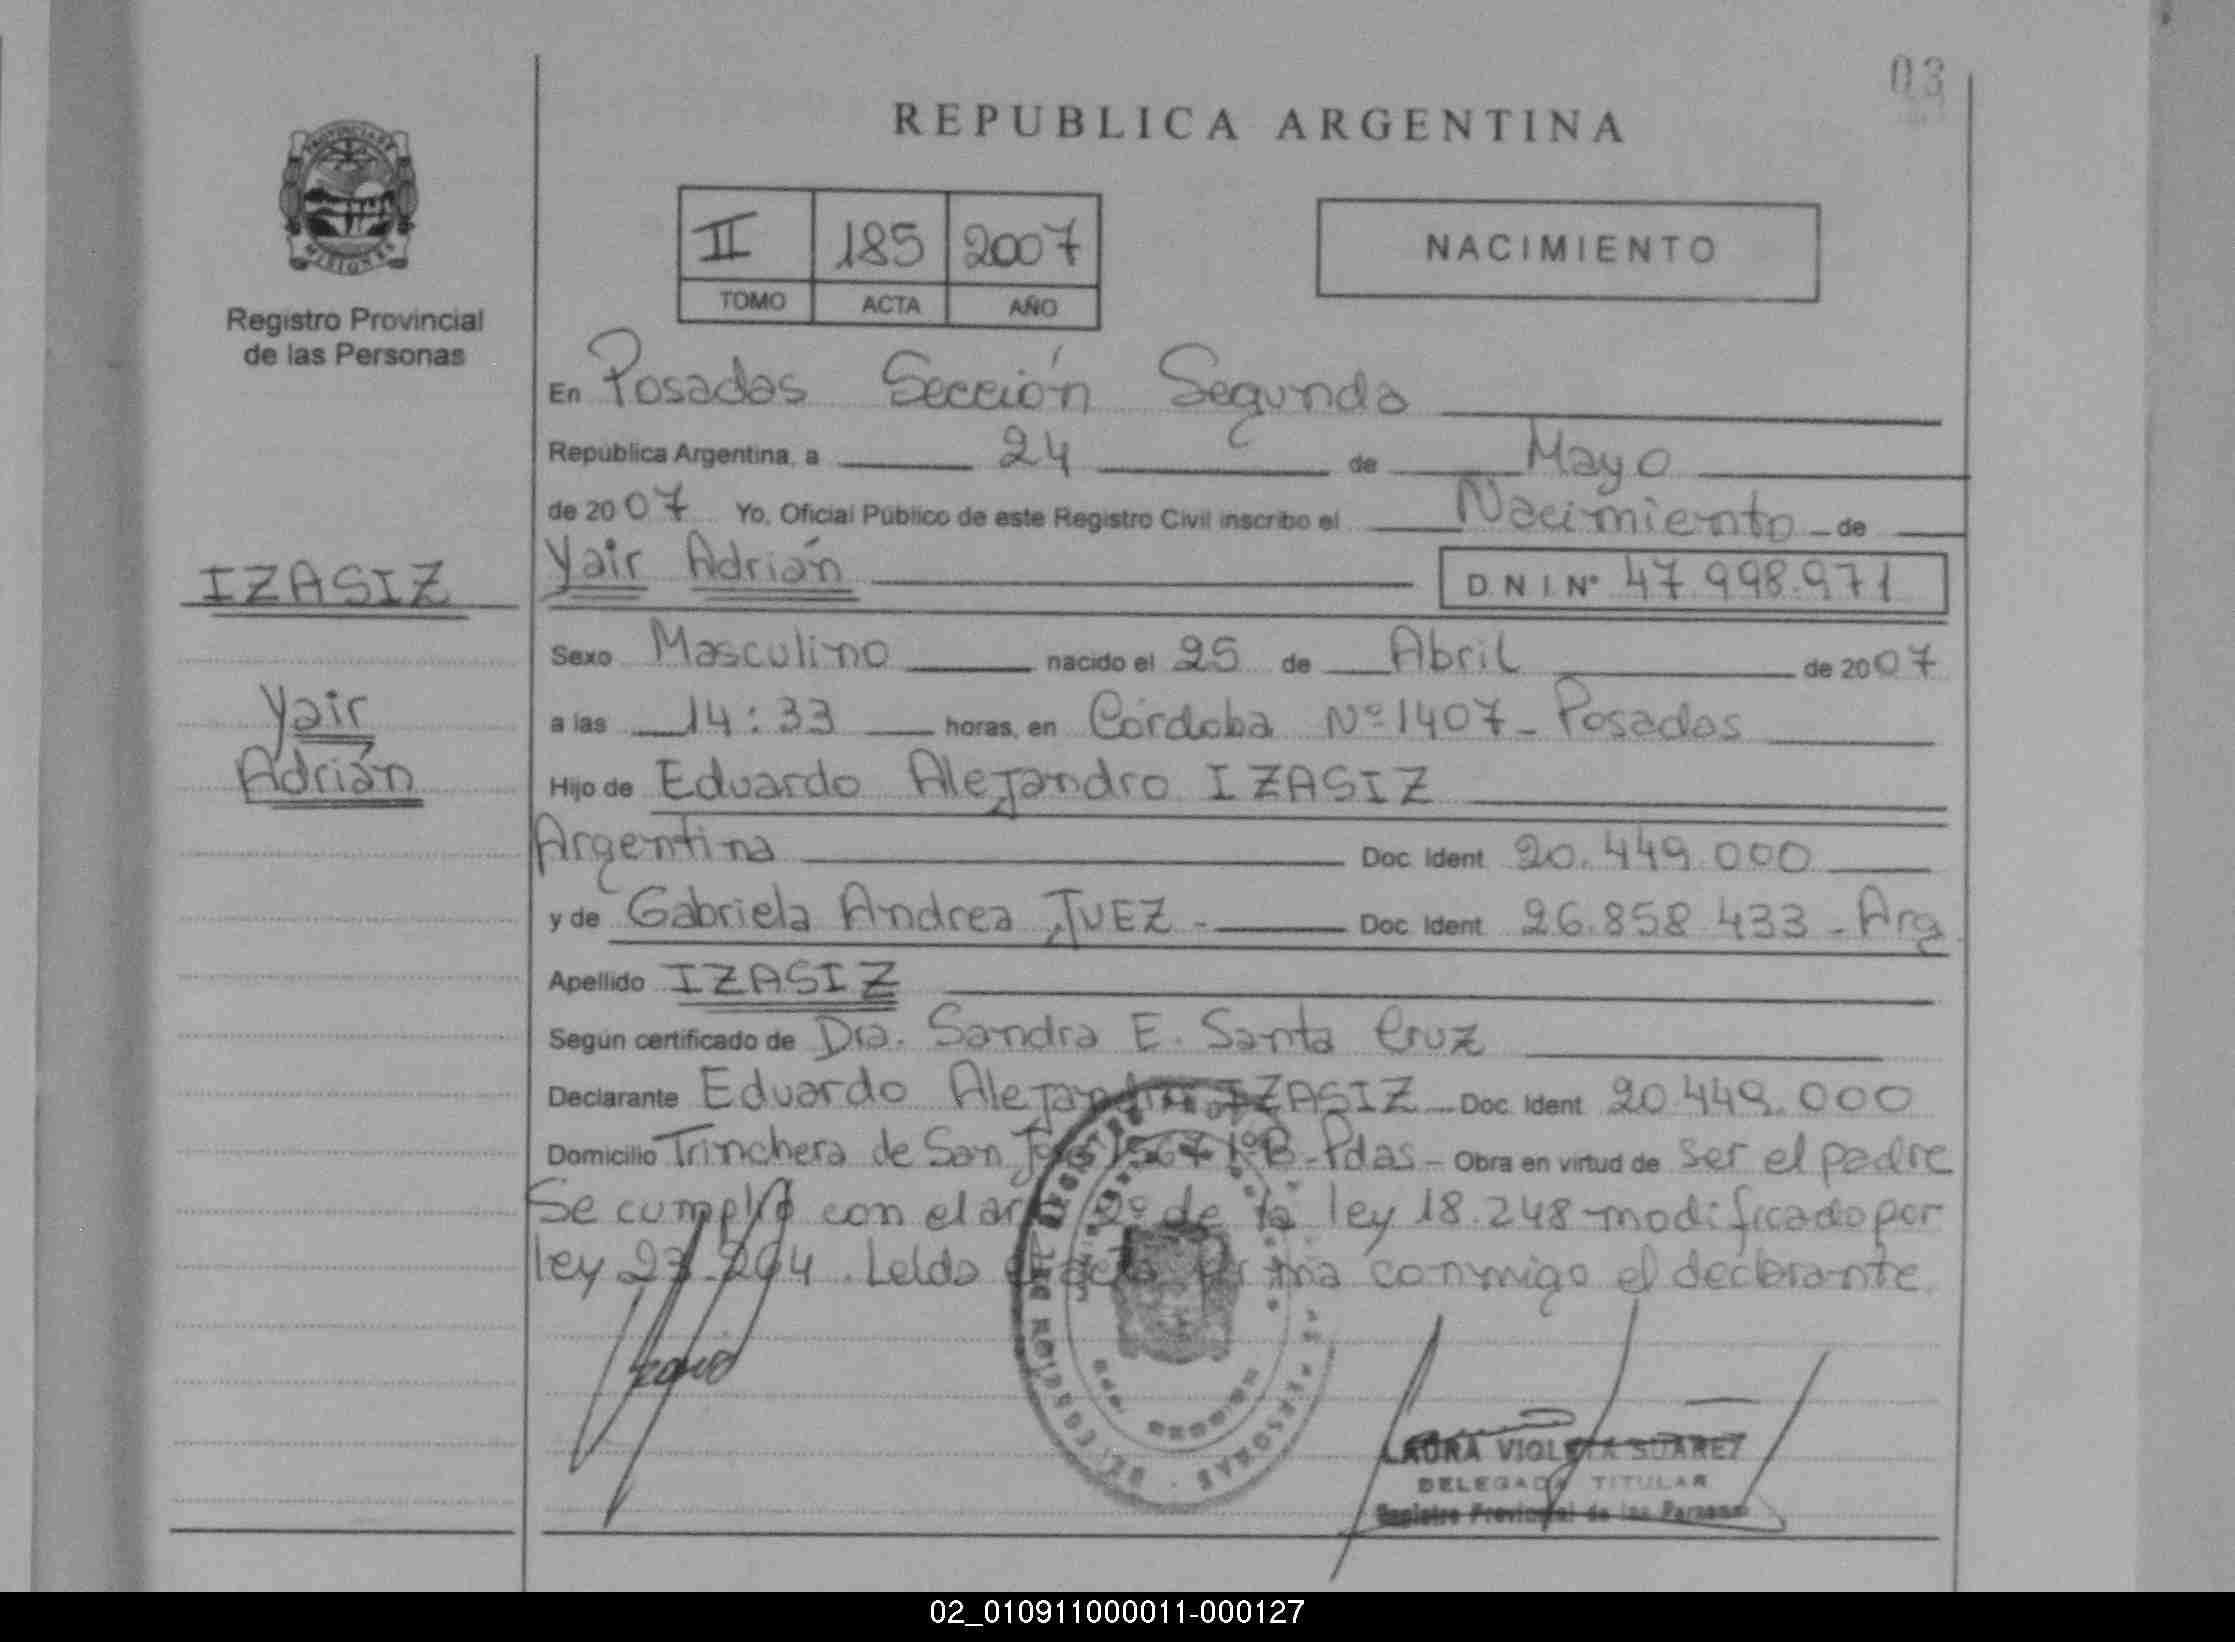 03
REPUBLICA ARGENTINA
PROVINCIA DE
MISIONES
Registro Provincial
de las Personas
II 185 2007
TOMO ACTA AÑO
NACIMIENTO
En Posadas Sección Segunda
República Argentina, a 24 de Mayo
de 2007 Yo, Oficial Público de este Registro Civil inscribo el Nacimiento de
IZASIZ
Yair Adrián
D.N.I. Nº 47.998.971
Sexo Masculino nacido el 25 de Abril de 2007
Yair
Adrián
a las 14:33 horas, en Córdoba Nº 1407 - Posadas
Hijo de Eduardo Alejandro IZASIZ
Argentina Doc. Ident. 20.449.000
y de Gabriela Andrea JUEZ - Doc. Ident. 26.858.433 - Arg
Apellido IZASIZ
Según certificado de Dra. Sandra E. Santa Cruz
Declarante Eduardo Alejandro IZASIZ - Doc. Ident. 20.449.000
Domicilio Trinchera de San José 1567 1º B - Pdas - Obra en virtud de ser el padre
Se cumplió con el art 2º de la ley 18.248 modificado por
ley 23.264. Leída el acta firma conmigo el declarante
LAURA VIOLETA SUAREZ
DELEGADA TITULAR
Registro Provincial de las Personas
02_010911000011-000127